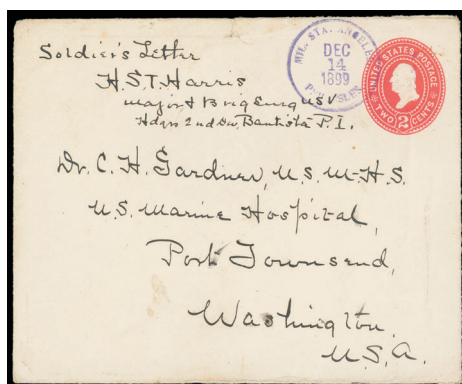 Soldier's Letter
H.S.T. Harris
Major & Brig Surg USV
Hdqrs 2nd Div Bautista P.I.
MIL. STA. ANGELES
DEC
14
1899
PHIL ISLES
UNITED STATES POSTAGE
TWO 2 CENTS
Dr. C. H. Gardner, U.S. M-H.S.
U.S. Marine Hospital,
Port Townsend,
Washington.
U.S.A.